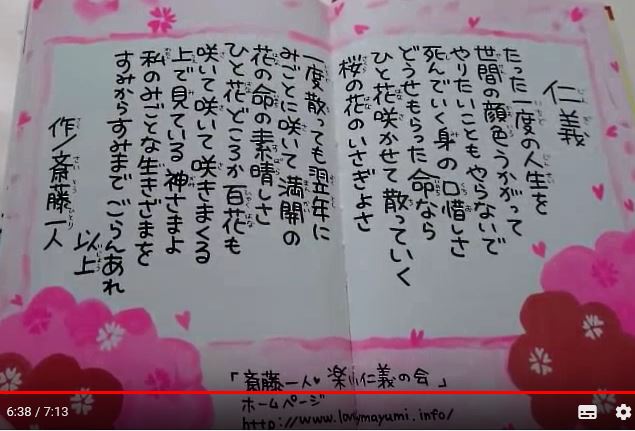 仁義
たった一度の人生を
世間の顔色うかがって
やりたいこともやらないで
死んでいく身の口惜しさ
どうせもらった命なら
ひと花咲かせて散っていく
桜の花のいさぎよさ
一度散っても翌年に
みごとに咲いて満開の
花の命の素晴しさ
ひと花どころか百花も
咲いて咲いて咲きまくる
上で見ている神さまよ
私のみごとな生きざまを
すみからすみまでごらんあれ
以上
作/斎藤一人
「斎藤一人♥楽しい仁義の会」
ホームページ
http://www.lovlymayumi.info/
6:38 / 7:13